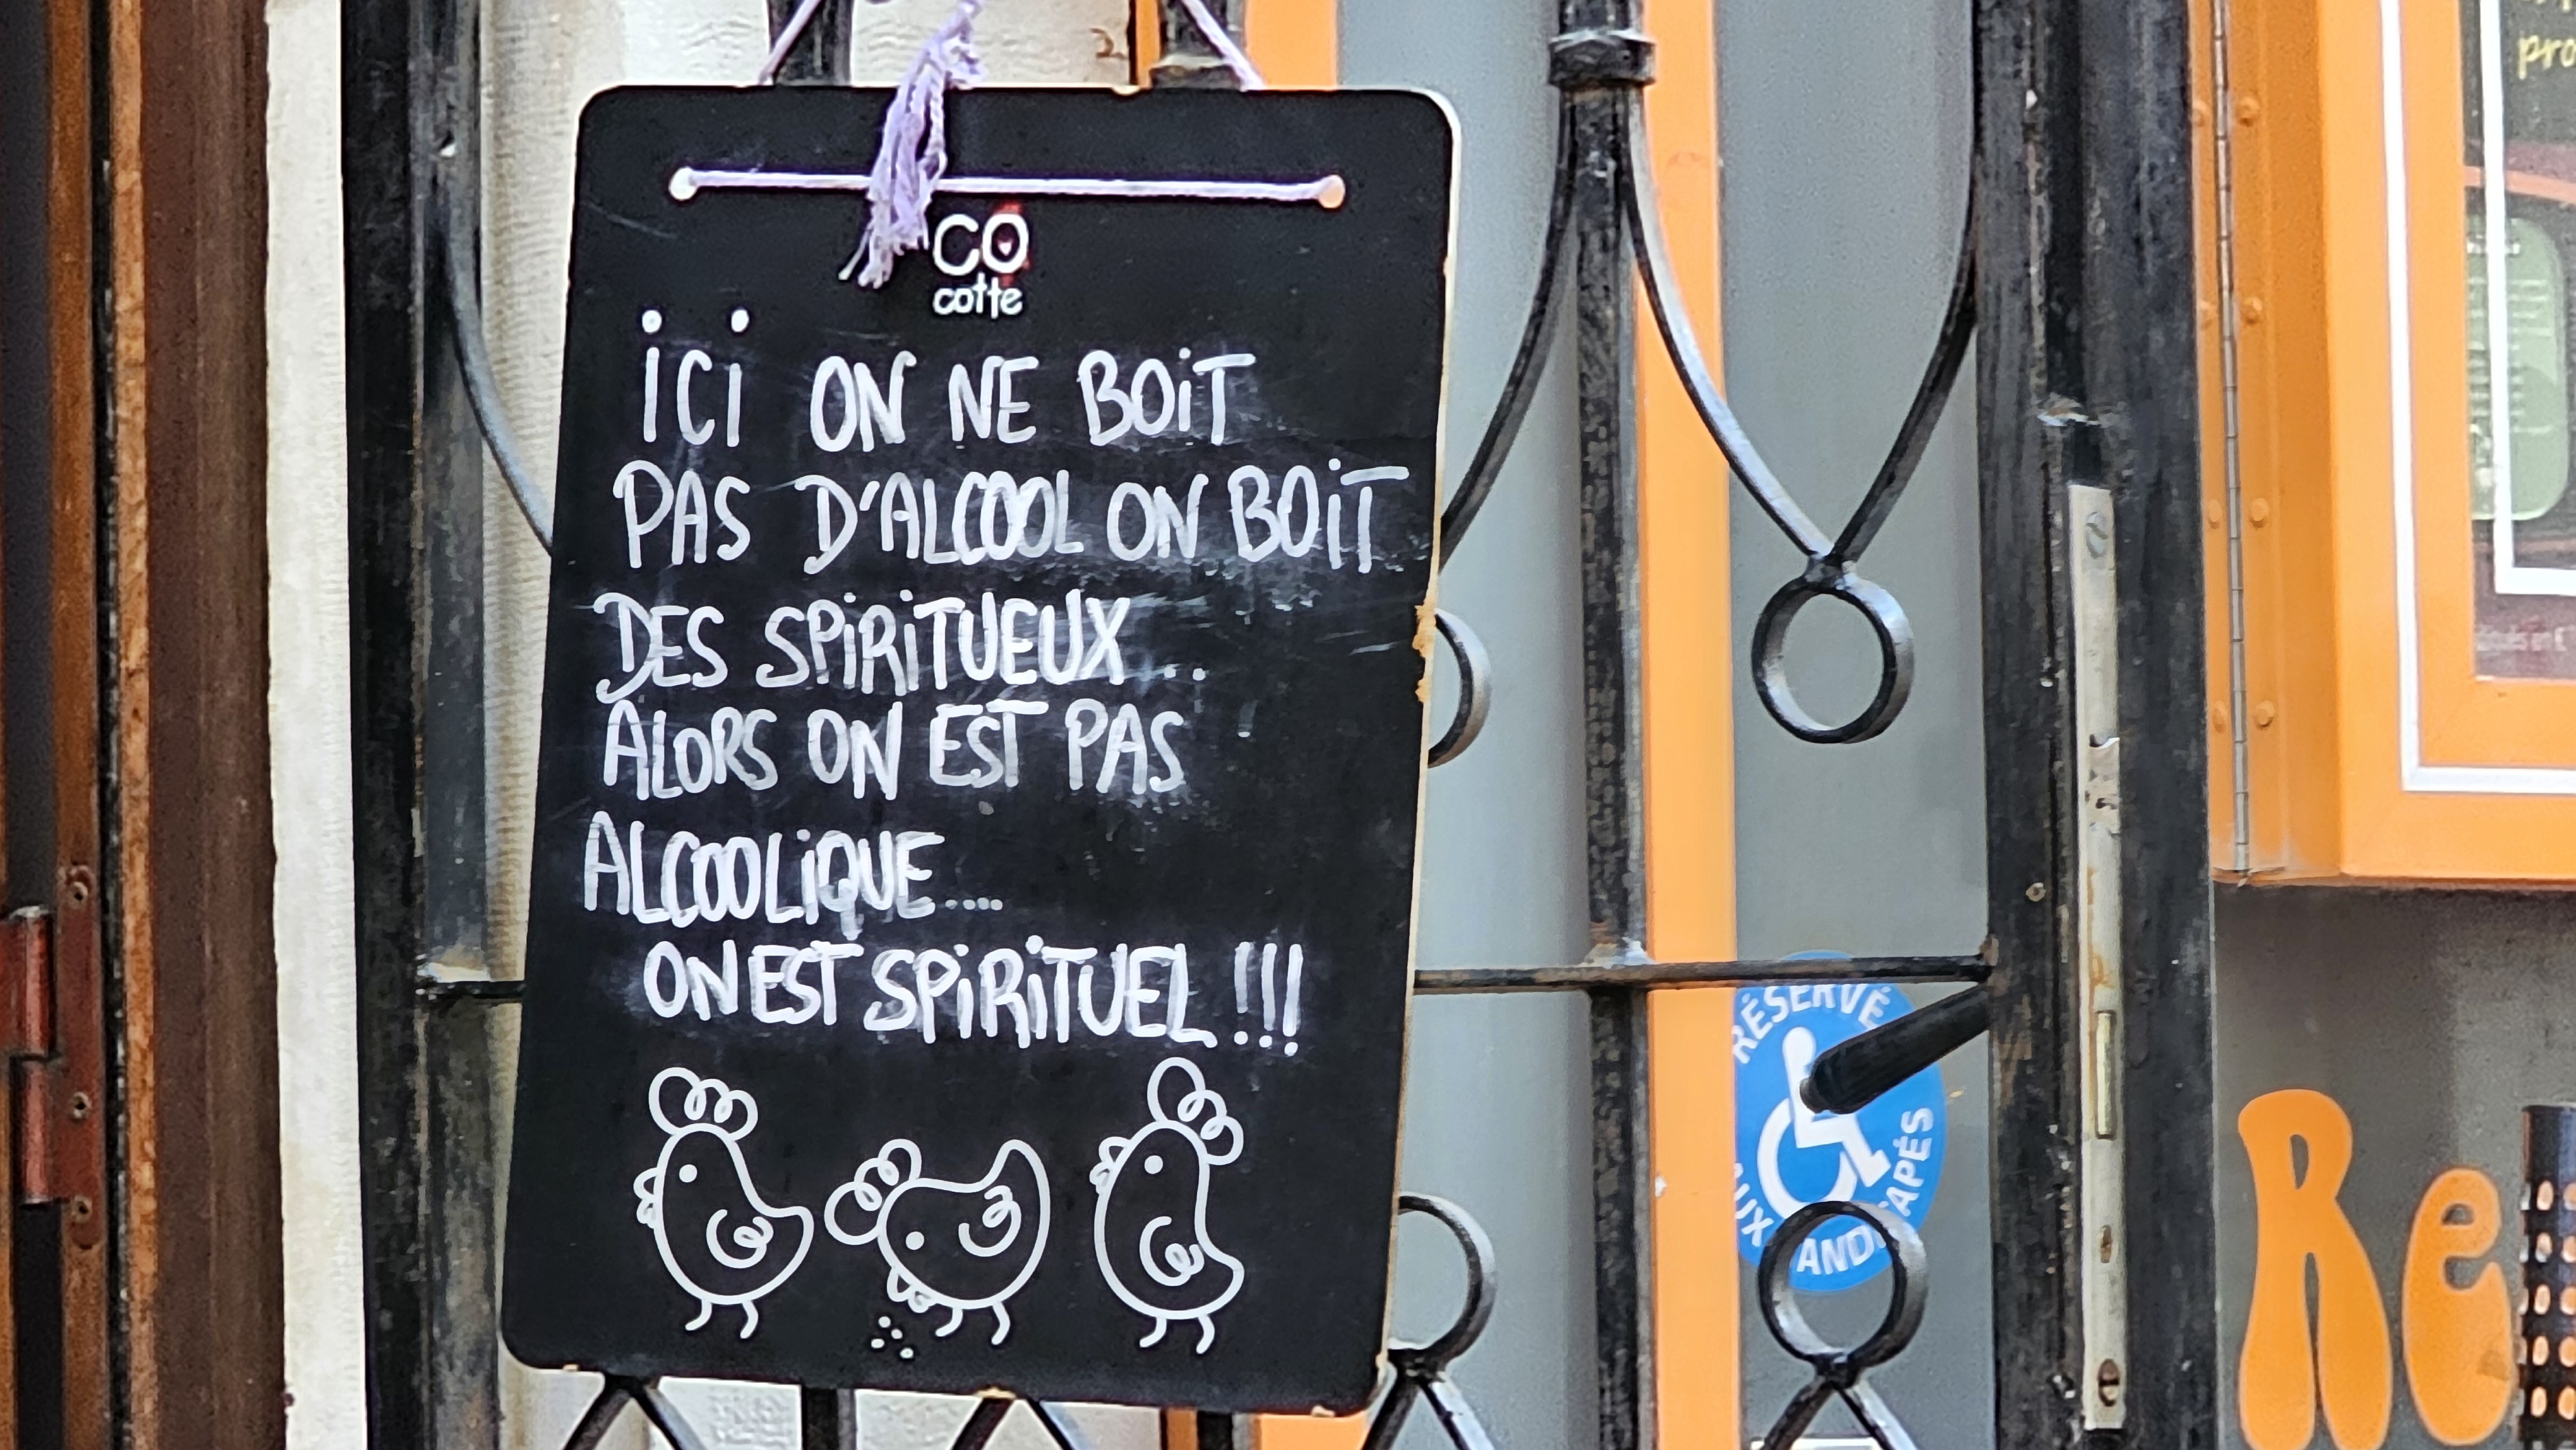 CO
cotte
iCi ON NE BOiT
PAS D'ALCOOL ON BOiT
DES SPiRiTUEUX...
ALORS ON EST PAS
ALCOOLiQUE....
ON EST SPiRiTUEL !!!
RÉSERVÉ
Re
pro